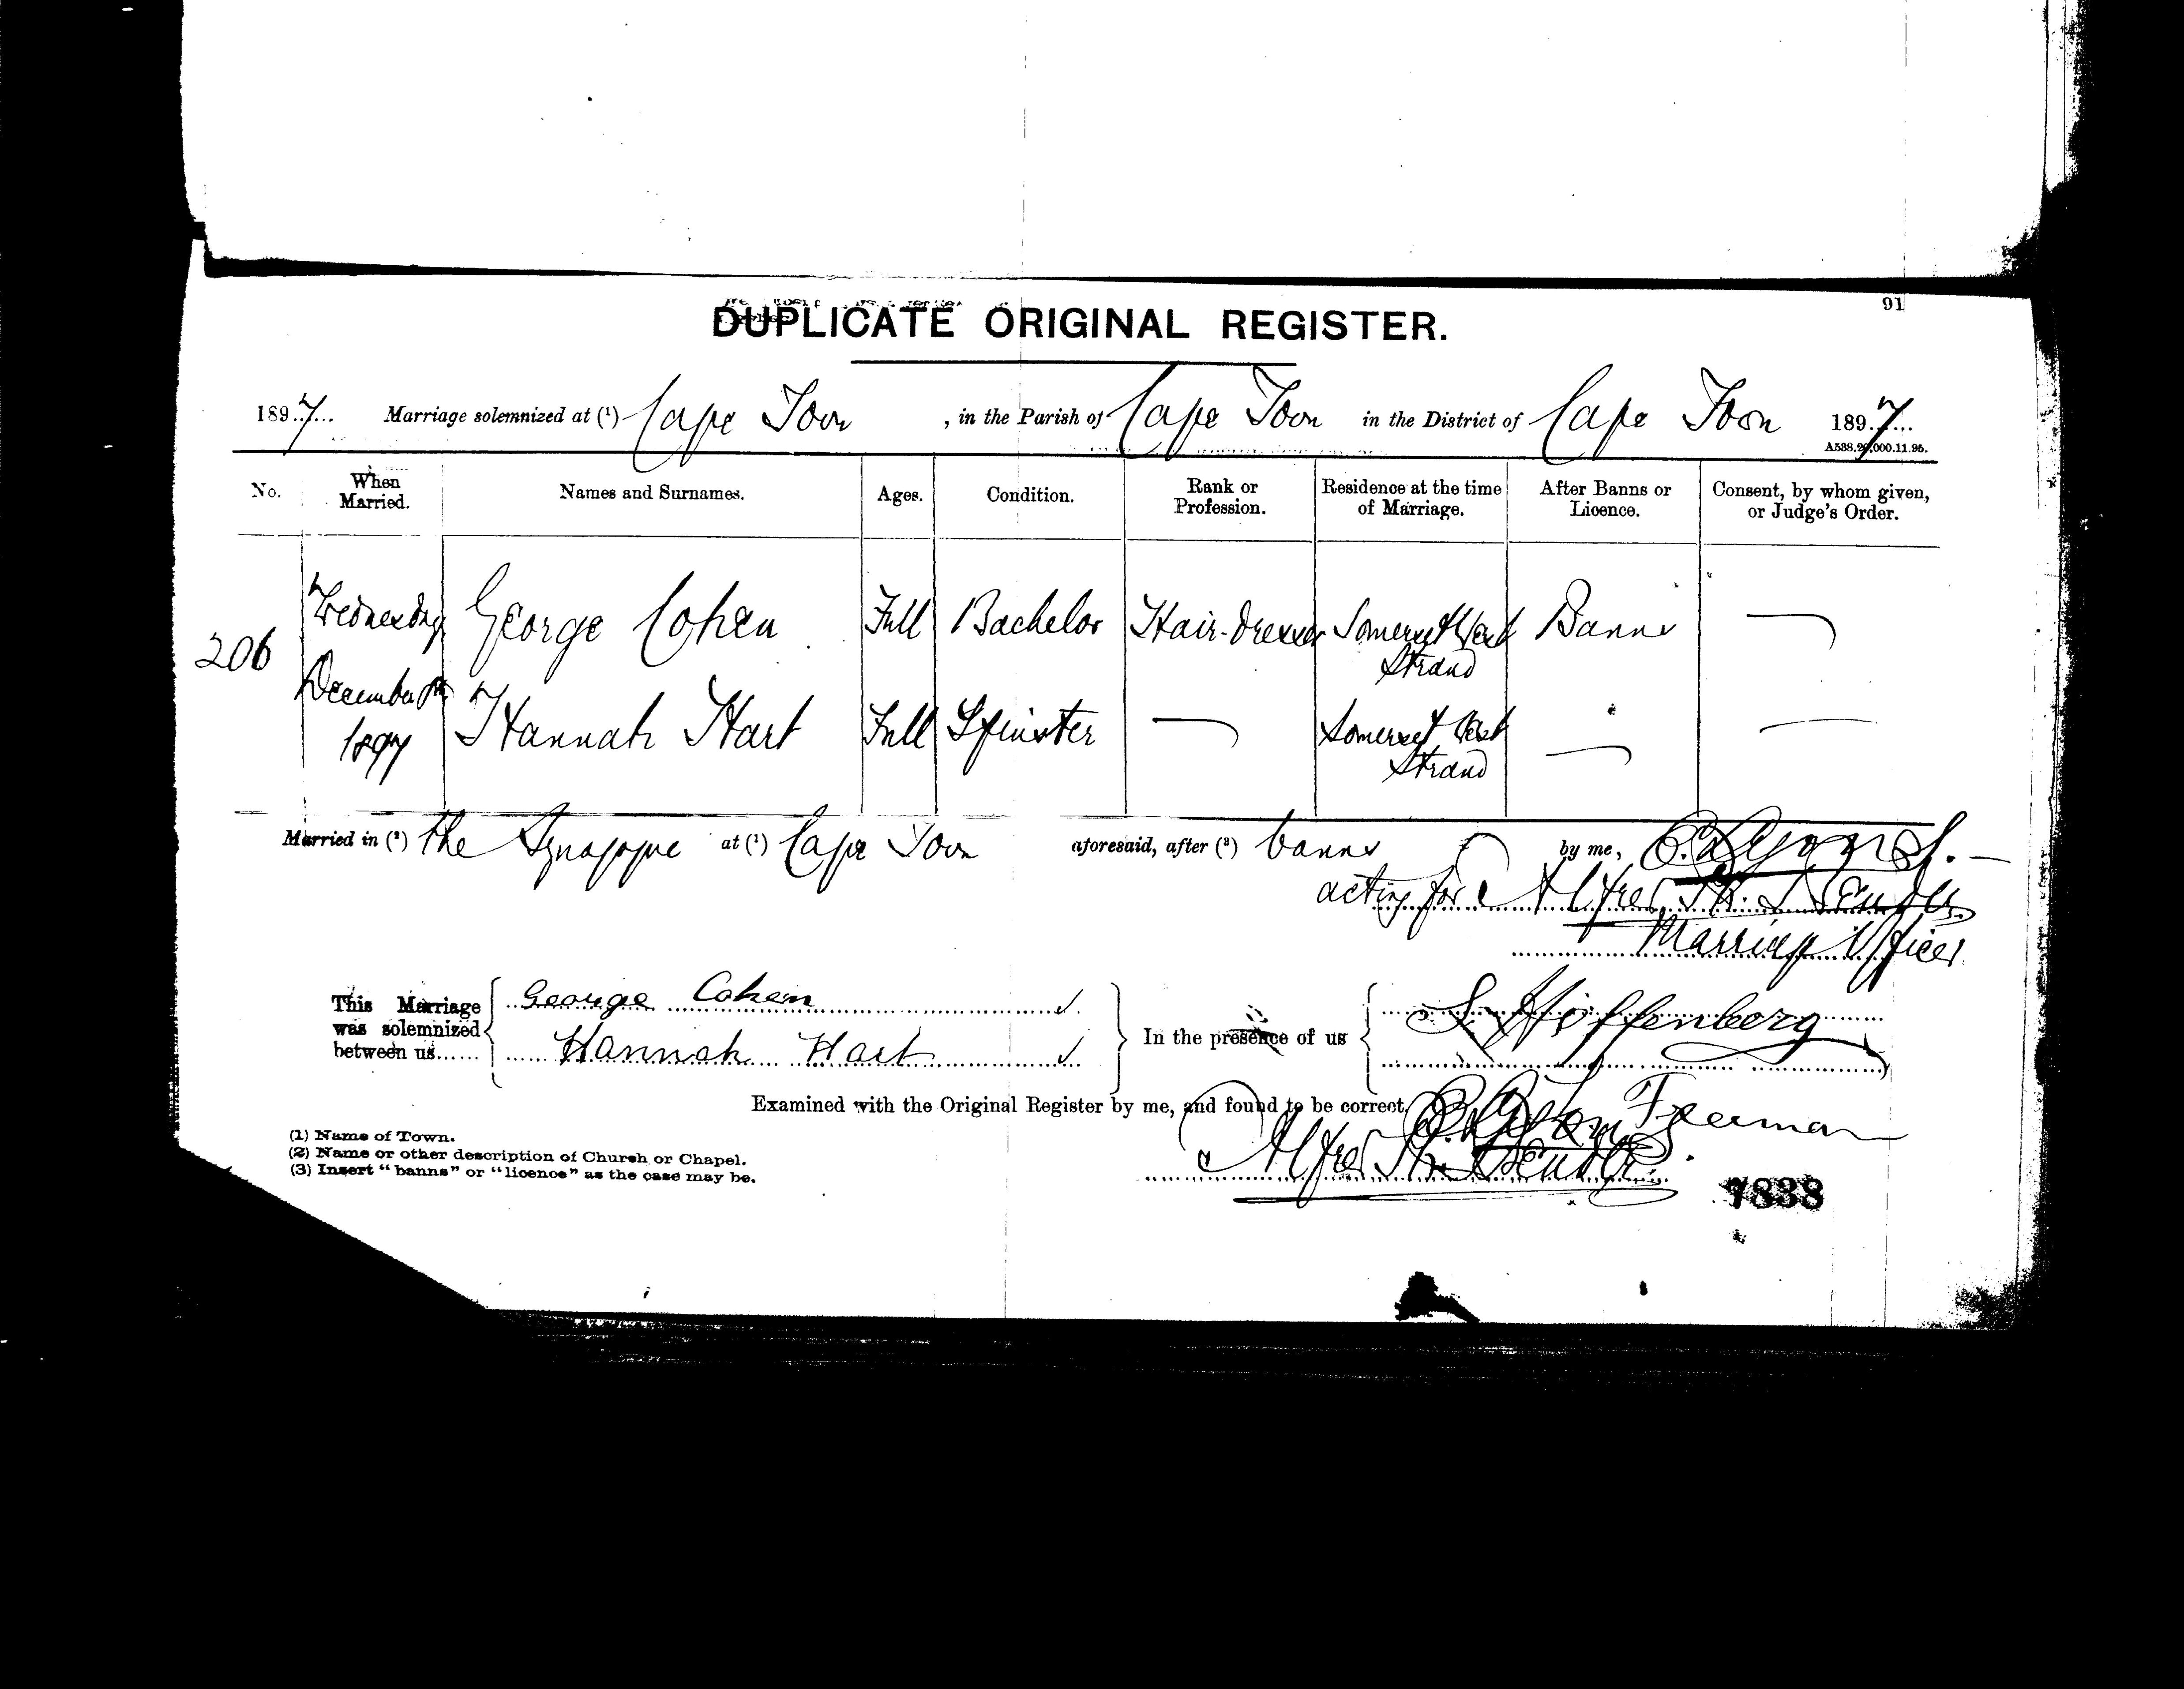 91
DUPLICATE ORIGINAL REGISTER.
1897... Marriage solemnized at (1) Cape Town, in the Parish of Cape Town in the District of Cape Town 1897...
A538.20,000.11.95.
No. When Married. Names and Surnames. Ages. Condition. Rank or Profession. Residence at the time of Marriage. After Banns or Licence. Consent, by whom given, or Judge's Order.
206 Wednesday December 1897
George Cohen Full Bachelor Hair-dresser Somerset West Strand Banns —
Hannah Hart Full Spinster — Somerset West Strand — —
Married in (2) the Synagogue at (1) Cape Town aforesaid, after (3) banns by me,
acting for Alfred
Marriage Officer
This Marriage was solemnized between us...... George Cohen
Hannah Hart
In the presence of us
Freeman
Examined with the Original Register by me, and found to be correct,
Alfred
(1) Name of Town.
(2) Name or other description of Church or Chapel.
(3) Insert "banns" or "licence" as the case may be.
1838